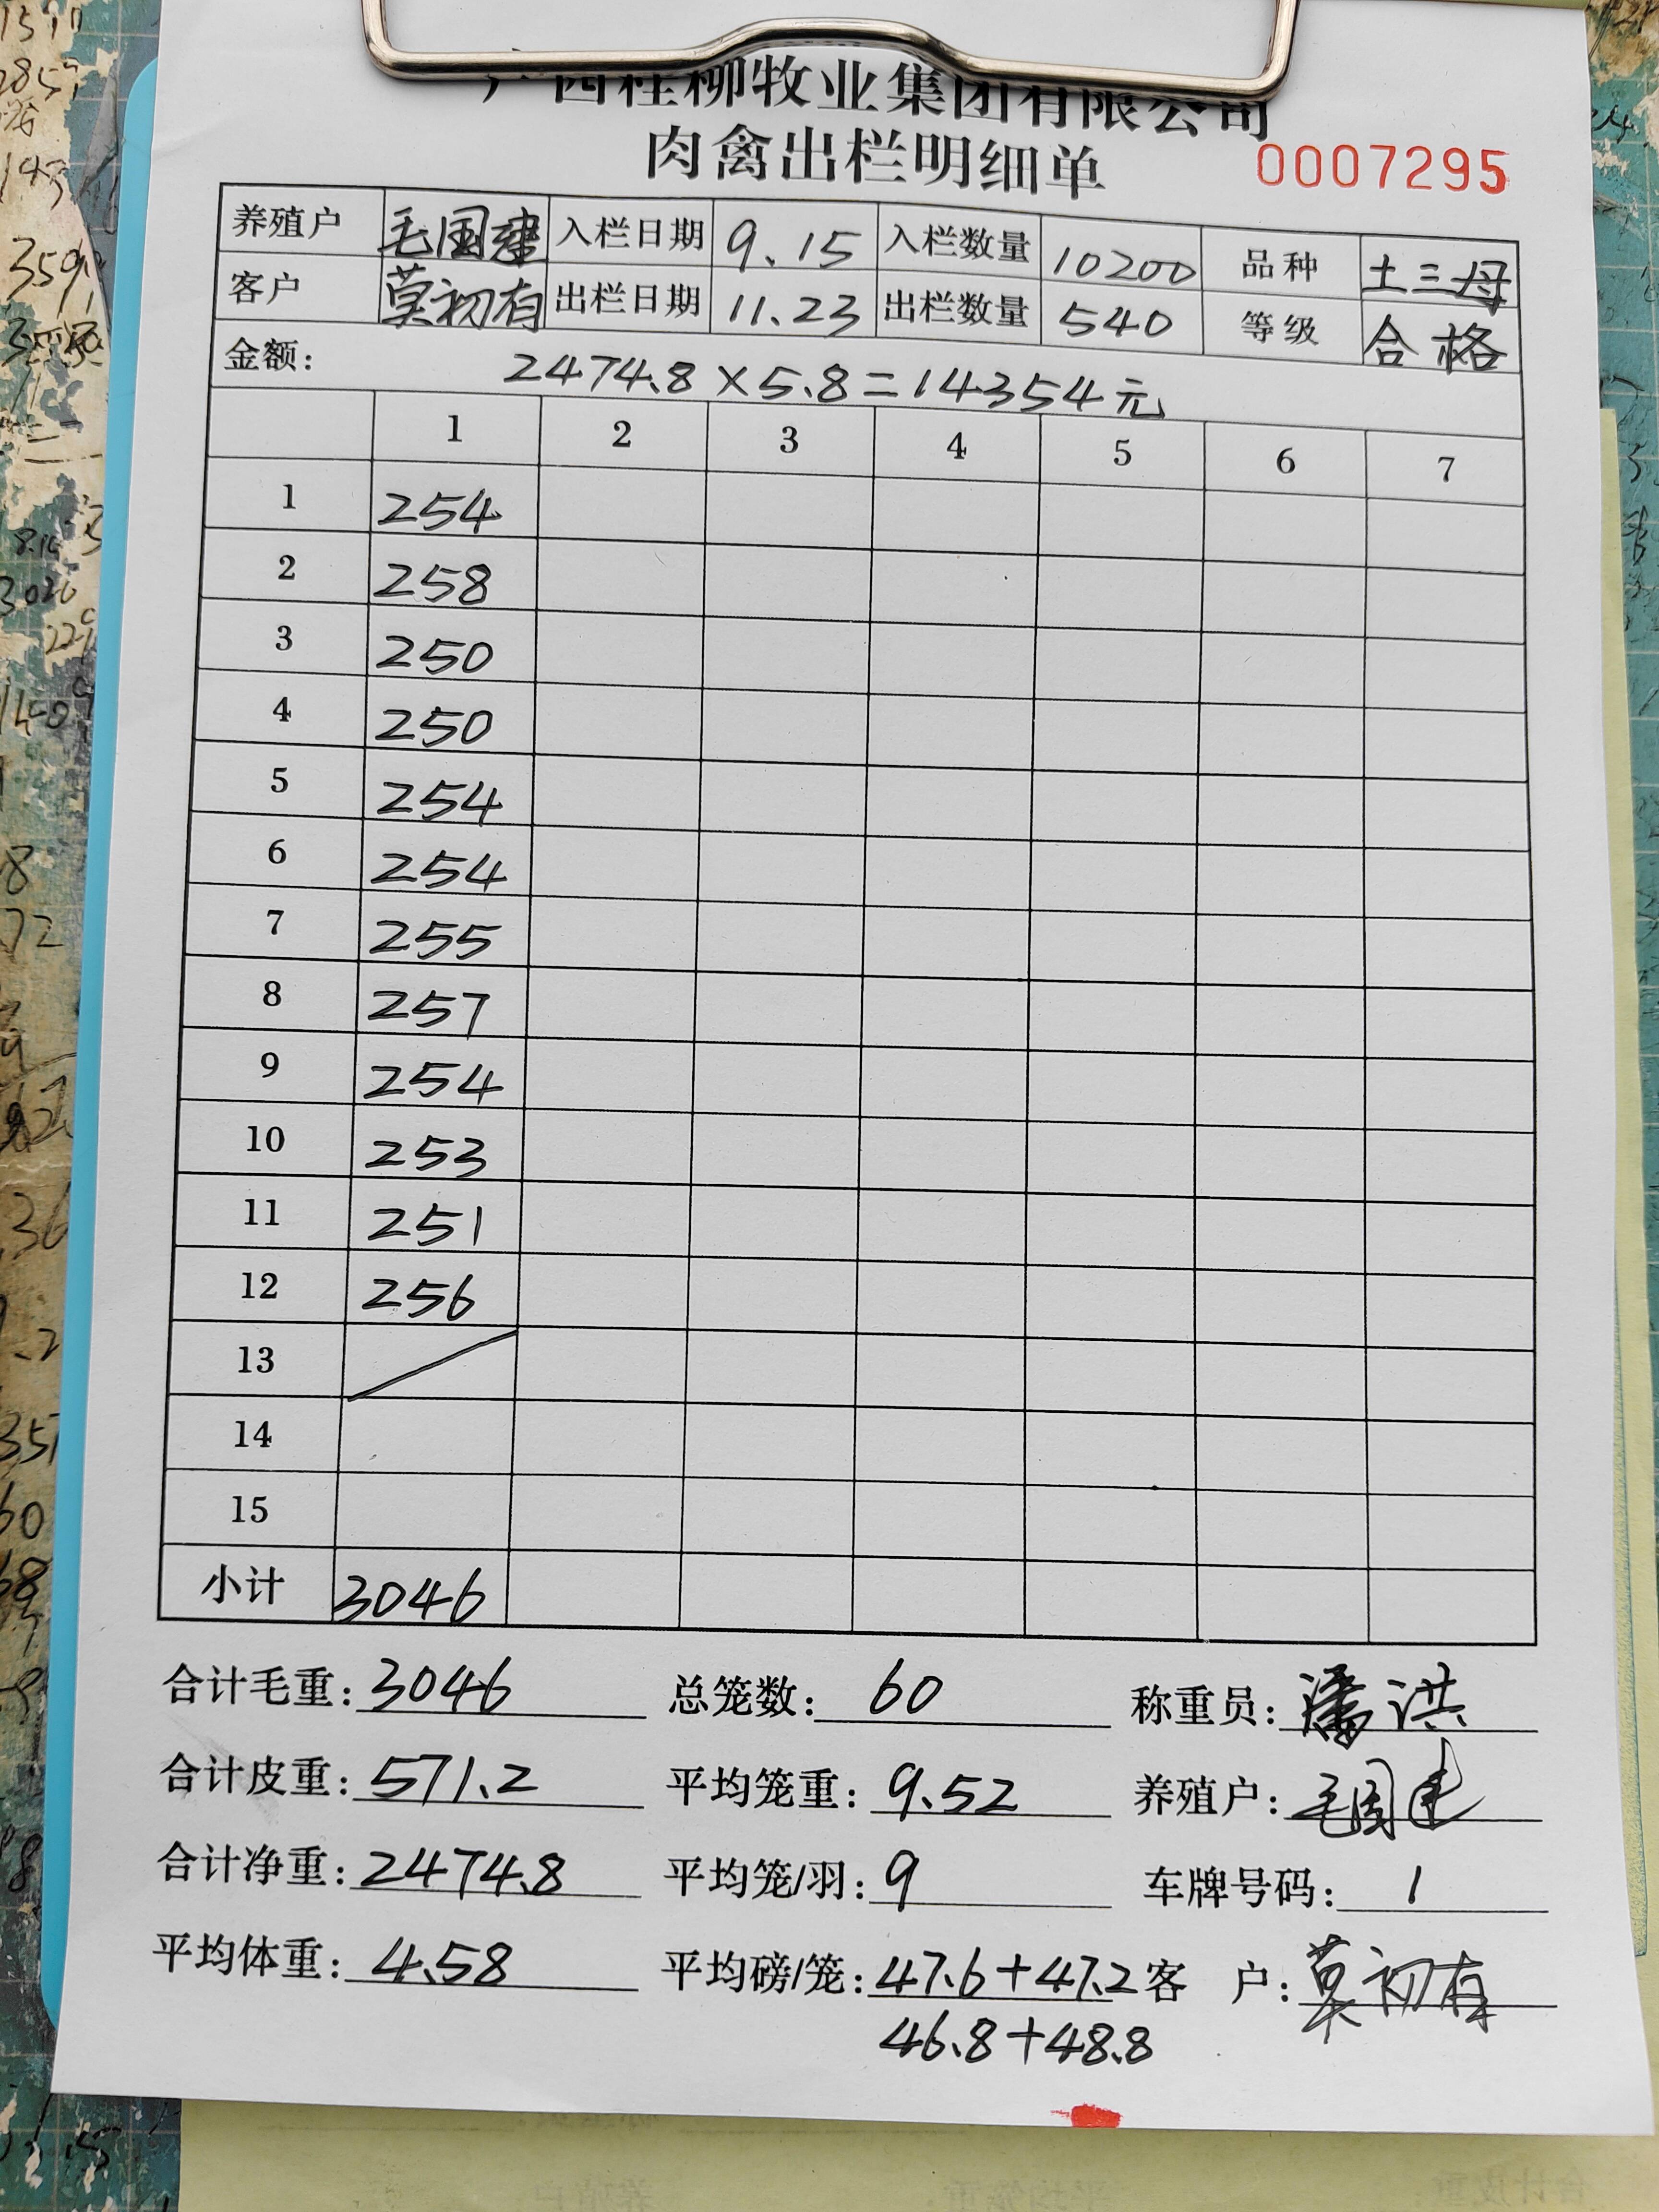 广西桂柳牧业集团有限公司
肉禽出栏明细单 0007295
养殖户 毛国建 入栏日期 9.15 入栏数量 10200 品种 土三母
客户 莫初有 出栏日期 11.23 出栏数量 540 等级 合格
金额: 2474.8×5.8=14354元
1 2 3 4 5 6 7
1 254
2 258
3 250
4 250
5 254
6 254
7 255
8 257
9 254
10 253
11 251
12 256
13
14
15
小计 3046
合计毛重: 3046 总笼数: 60 称重员: 潘洪
合计皮重: 571.2 平均笼重: 9.52 养殖户: 毛国建
合计净重: 2474.8 平均笼/羽: 9 车牌号码: 1
平均体重: 4.58 平均磅/笼: 47.6+47.2 客户: 莫初有
46.8+48.8